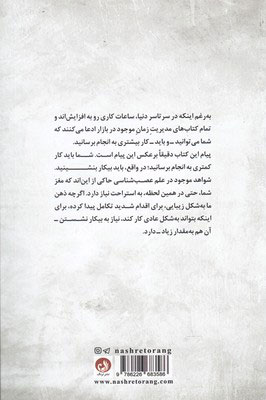 به‌رغم اینکه در سرتاسر دنیا، ساعات کاری رو به افزایش‌اند و
تمام کتاب‌های مدیریت زمان موجود در بازار ادعا می‌کنند که
شما می‌توانید ــ و باید ــ کار بیشتری به انجام برسانید.
پیام این کتاب دقیقاً برعکس این پیام است. شما باید کار
کمتری به انجام برسانید؛ در واقع، باید بیکار بنشینید.
شواهد موجود در علم عصب‌شناسی حاکی از این‌اند که مغز
شما، حتی در همین لحظه، به استراحت نیاز دارد. اگرچه ذهن
ما به‌شکل زیبایی، برای اقدام شدید تکامل پیدا کرده، برای
اینکه بتواند به‌شکل عادی کار کند، نیاز به بیکار نشستن ــ
آن هم به‌مقدار زیاد ــ دارد.
nashretorang
nashretorang.com
9 786226 683586